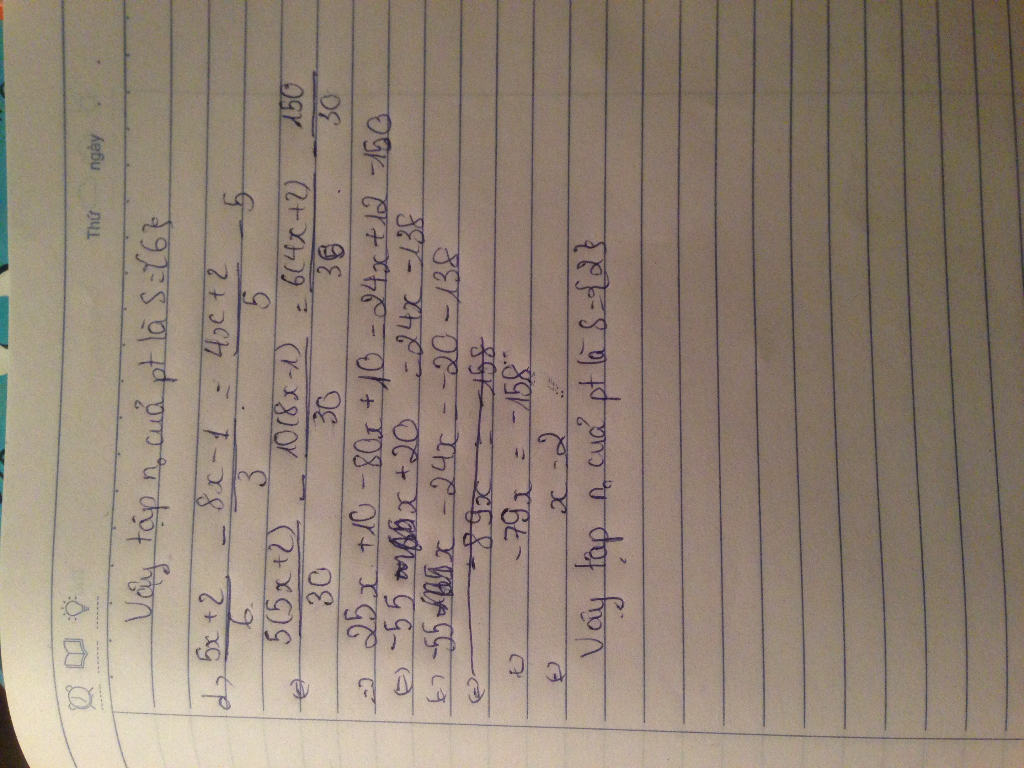 Thứ ngày
Vậy tập n₀ cuả pt là S={6}
d) 5x+2/6 - 8x-1/3 = 4x+2/5 - 5
⇔ 5(5x+2)/30 - 10(8x-1)/30 = 6(4x+2)/30 - 150/30
⇒ 25x + 10 - 80x + 10 = 24x + 12 - 150
⇔ -55x + 20 = 24x - 138
⇔ -55x - 24x = -20 - 138
⇔ -89x = -158
⇔ -79x = -158
⇔ x = 2
Vậy tập n₀ cuả pt là S={2}